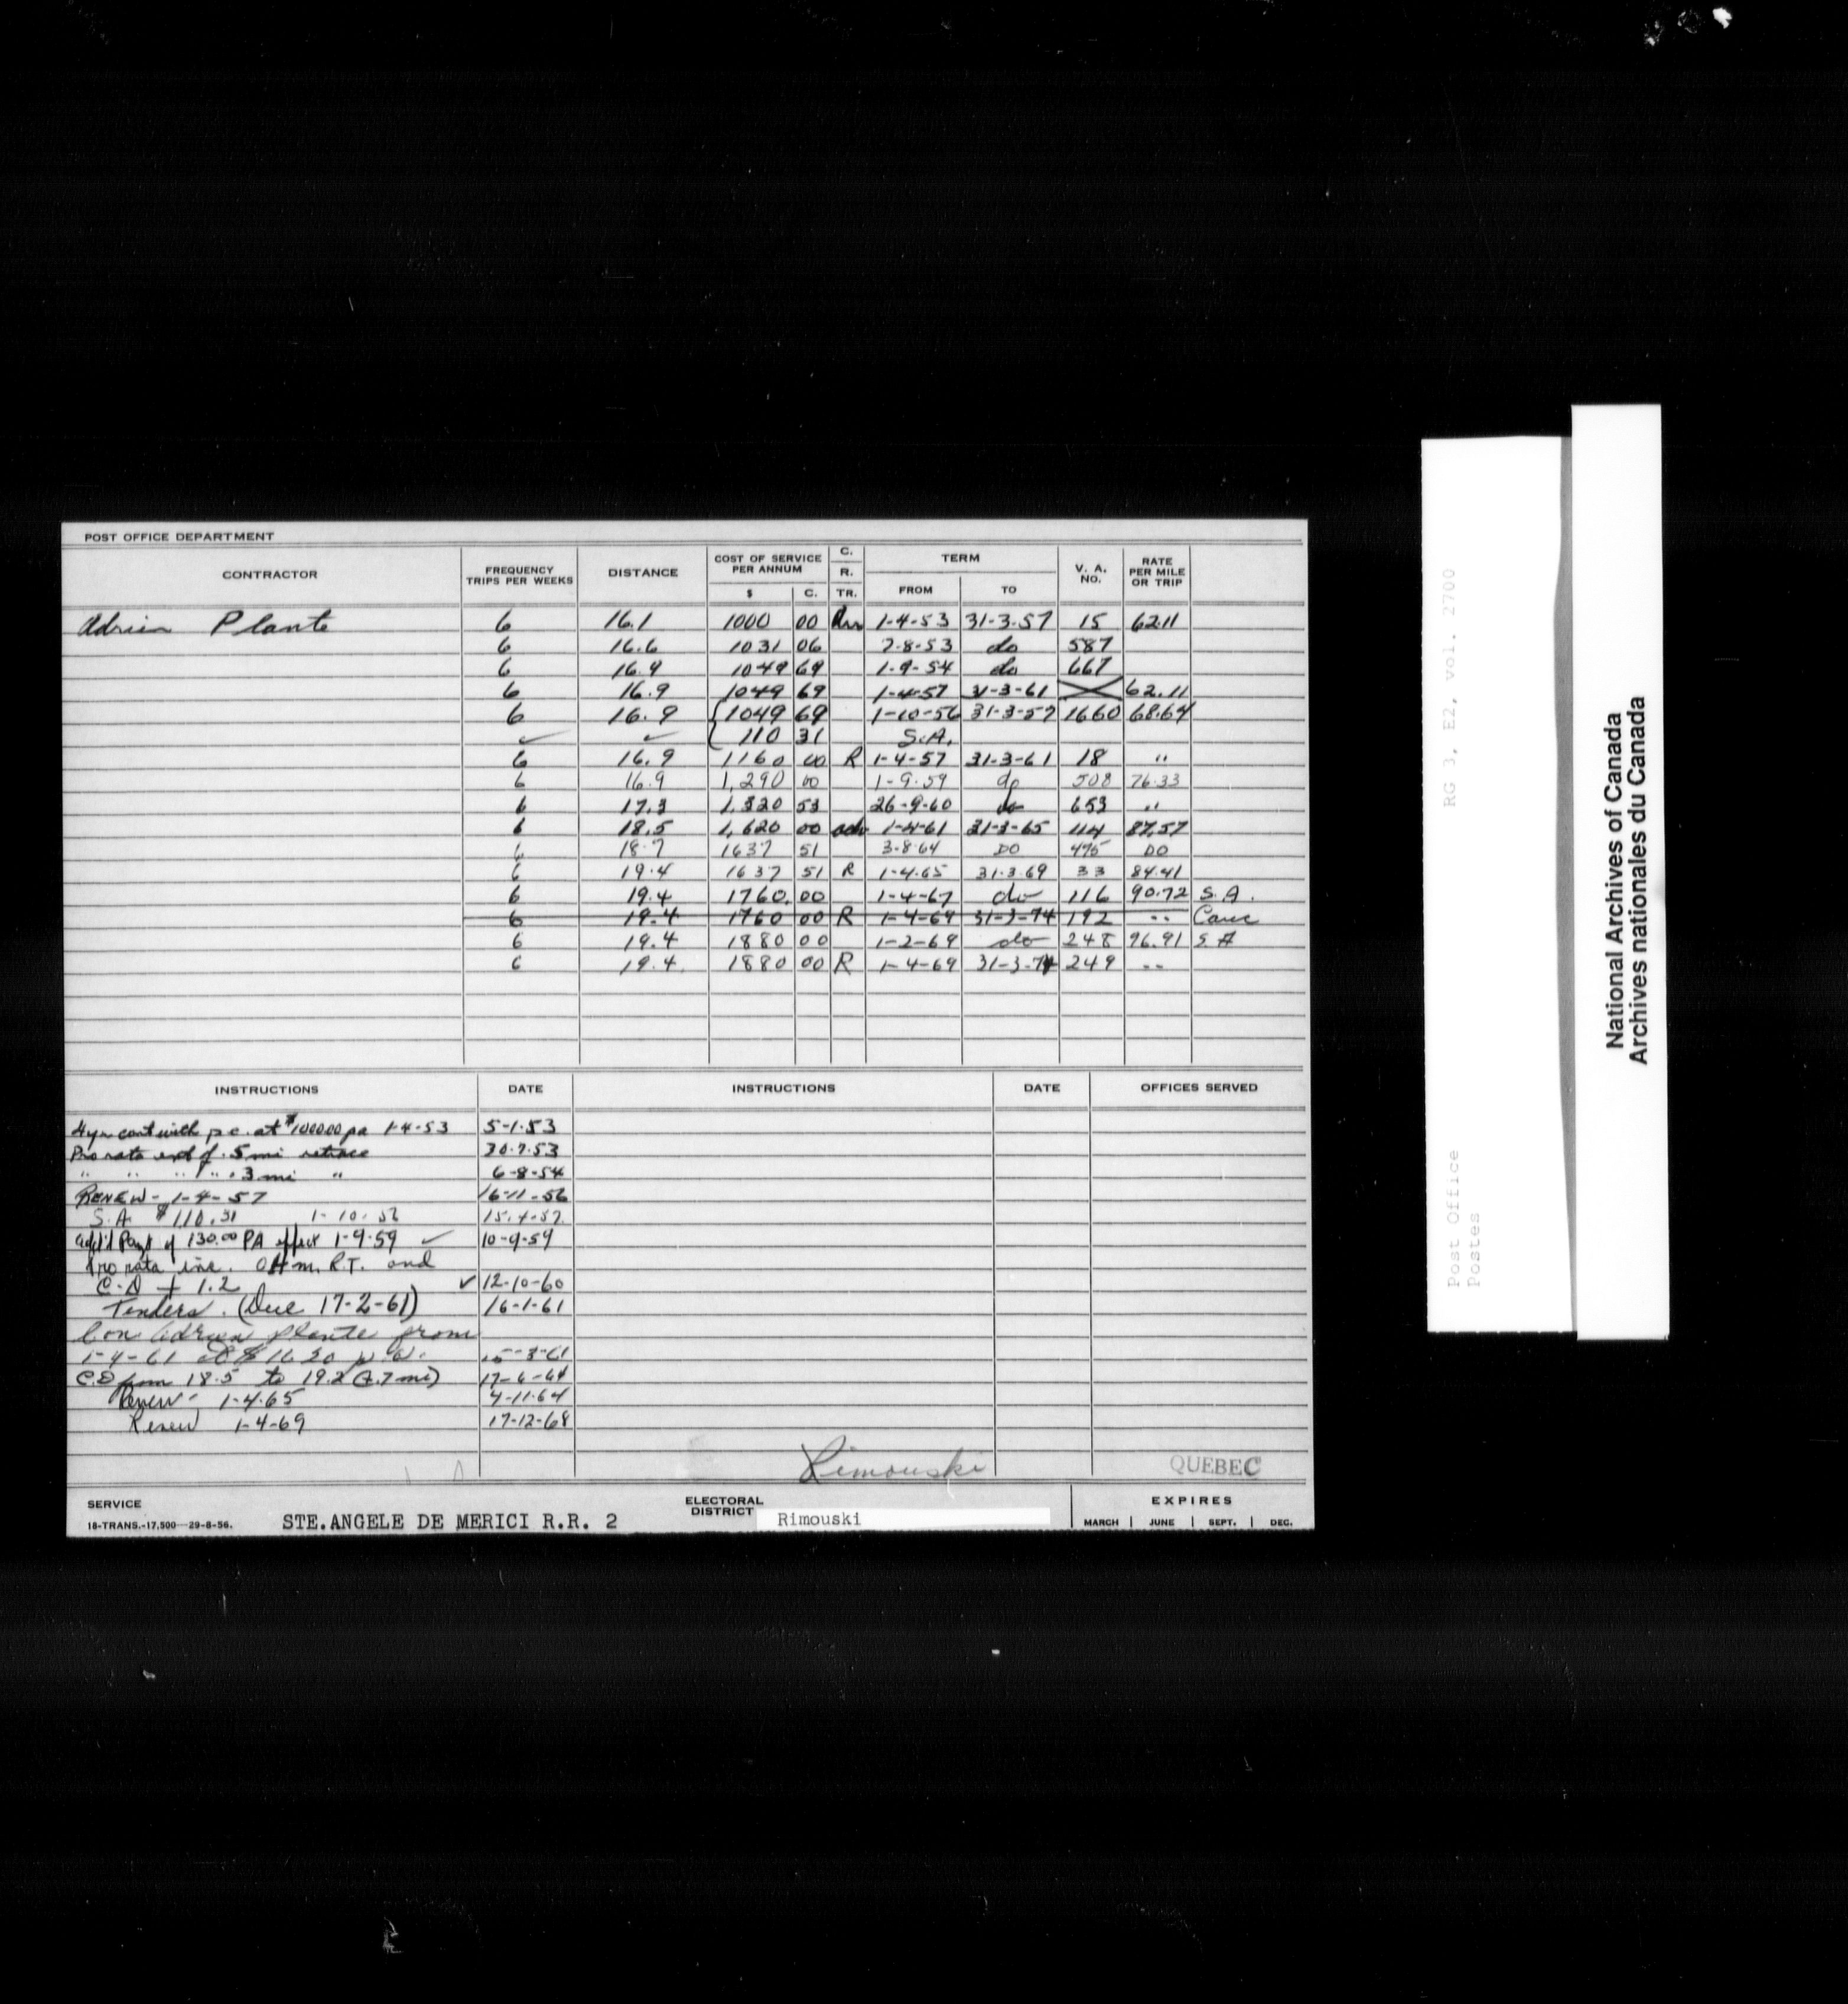 POST OFFICE DEPARTMENT
CONTRACTOR FREQUENCY TRIPS PER WEEKS DISTANCE COST OF SERVICE PER ANNUM $ C. C. R. TR. TERM FROM TO V. A. NO. RATE PER MILE OR TRIP
Adrien Plante 6 16.1 1000 00 1-4-53 31-3-57 15 62.11
6 16.6 1031 06 2-8-53 do 587
6 16.9 1049 69 1-9-54 do 667
6 16.9 1049 69 1-4-57 31-3-61 62.11
6 16.9 1049 69 1-10-56 31-3-57 1660 68.64
✓ ✓ 110 31 S.A.
6 16.9 1160 00 R 1-4-57 31-3-61 18 "
6 16.9 1,290 00 1-9-59 do 508 76.33
6 17.3 1,320 53 26-9-60 do 653 "
6 18.5 1,620 00 adv 1-4-61 31-3-65 114 87.57
6 18.7 1637 51 3-8-64 DO 475 DO
6 19.4 1637 51 R 1-4-65 31-3-69 33 84.41
6 19.4 1760.00 1-4-67 do 116 90.72 S.A.
6 19.4 1760 00 R 1-4-69 31-3-74 192 " Canc
6 19.4 1880 00 1-2-69 do 248 96.91 S A
6 19.4 1880 00 R 1-4-69 31-3-74 249 "
INSTRUCTIONS DATE INSTRUCTIONS DATE OFFICES SERVED
4 yr cont with p.c. at $1000.00 pa 1-4-53 5-1-53
Pro rata ext of .5 mi retrace 30-7-53
" " " " .3 mi " 6-8-54
RENEW - 1-4-57 16-11-56
S.A. $110.31 1-10-56 15-4-57
add'l Payt of 130.00 PA effect 1-9-59 ✓ 10-9-59
Pro rata inc. 0.4 m. R.T. and
C.D + 1.2 ✓ 12-10-60
Tenders. (Due 17-2-61) 16-1-61
Con Adrien Plante from
1-4-61 at $1620 p.a. 15-3-61
C.D from 18.5 to 19.2 (+.7 mi) 17-6-64
Renew - 1-4-65 4-11-64
Renew 1-4-69 17-12-68
Rimouski
QUEBEC
SERVICE
18-TRANS.-17,500—29-8-56.
STE.ANGELE DE MERICI R.R. 2
ELECTORAL DISTRICT Rimouski
EXPIRES
MARCH | JUNE | SEPT. | DEC.
Post Office RG 3, E2, vol. 2700
Postes
National Archives of Canada
Archives nationales du Canada